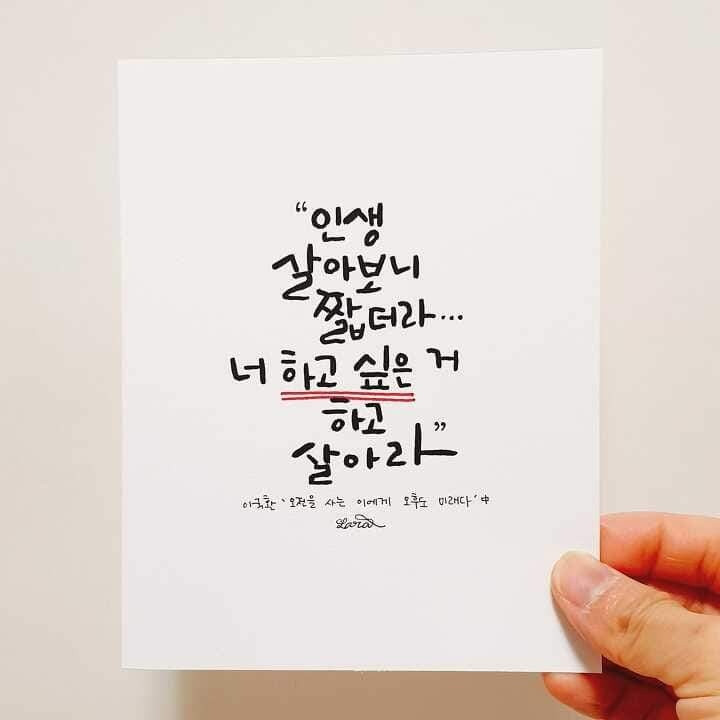 “인생
살아보니
짧더라...
너 하고 싶은 거
하고
살아라”
이국환 '오전을 사는 이에게 오후도 미래다' 中
Lara